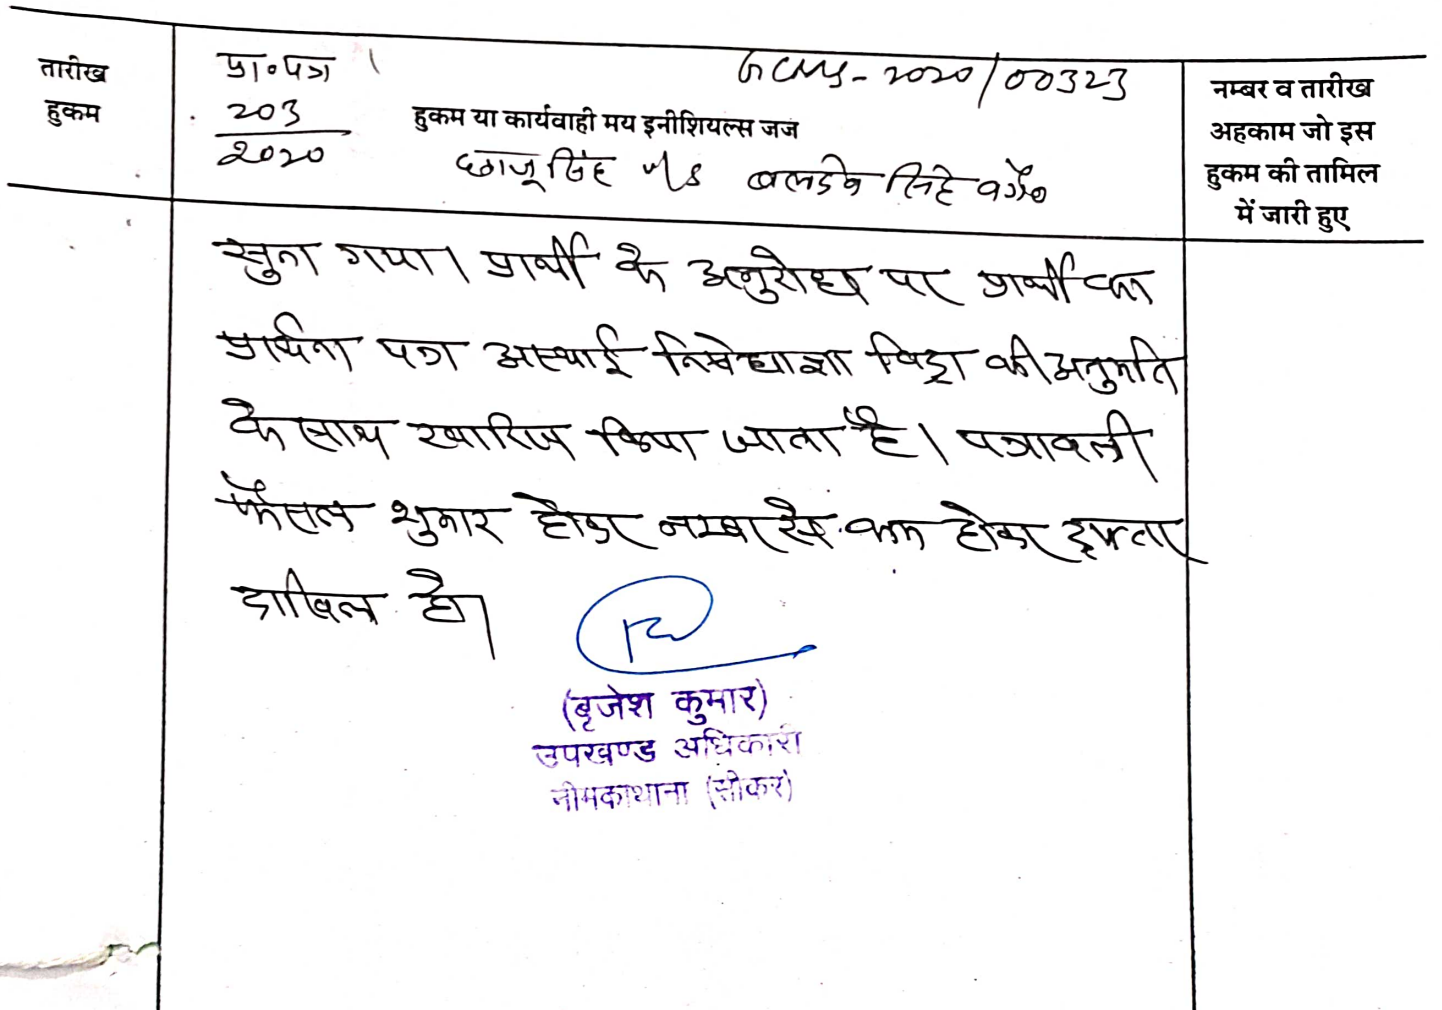 तारीख
हुकम
प्रा॰पत्र
203
2020
GCMS-2020/00323
हुकम या कार्यवाही मय इनीशियल्स जज
छाजूसिंह v/s बलदेव सिंह वगै॰
नम्बर व तारीख
अहकाम जो इस
हुकम की तामिल
में जारी हुए
सुना गया। प्रार्थी के अनुरोध पर प्रार्थी का
प्रार्थना पत्र अस्थाई निषेधाज्ञा विड्रा की अनुमति
के साथ खारिज किया जाता है। पत्रावली
फैसल शुमार होकर नम्बर से कम होकर दफ्तर
दाखिल हो।
(बृजेश कुमार)
उपखण्ड अधिकारी
नीमकाथाना (सीकर)